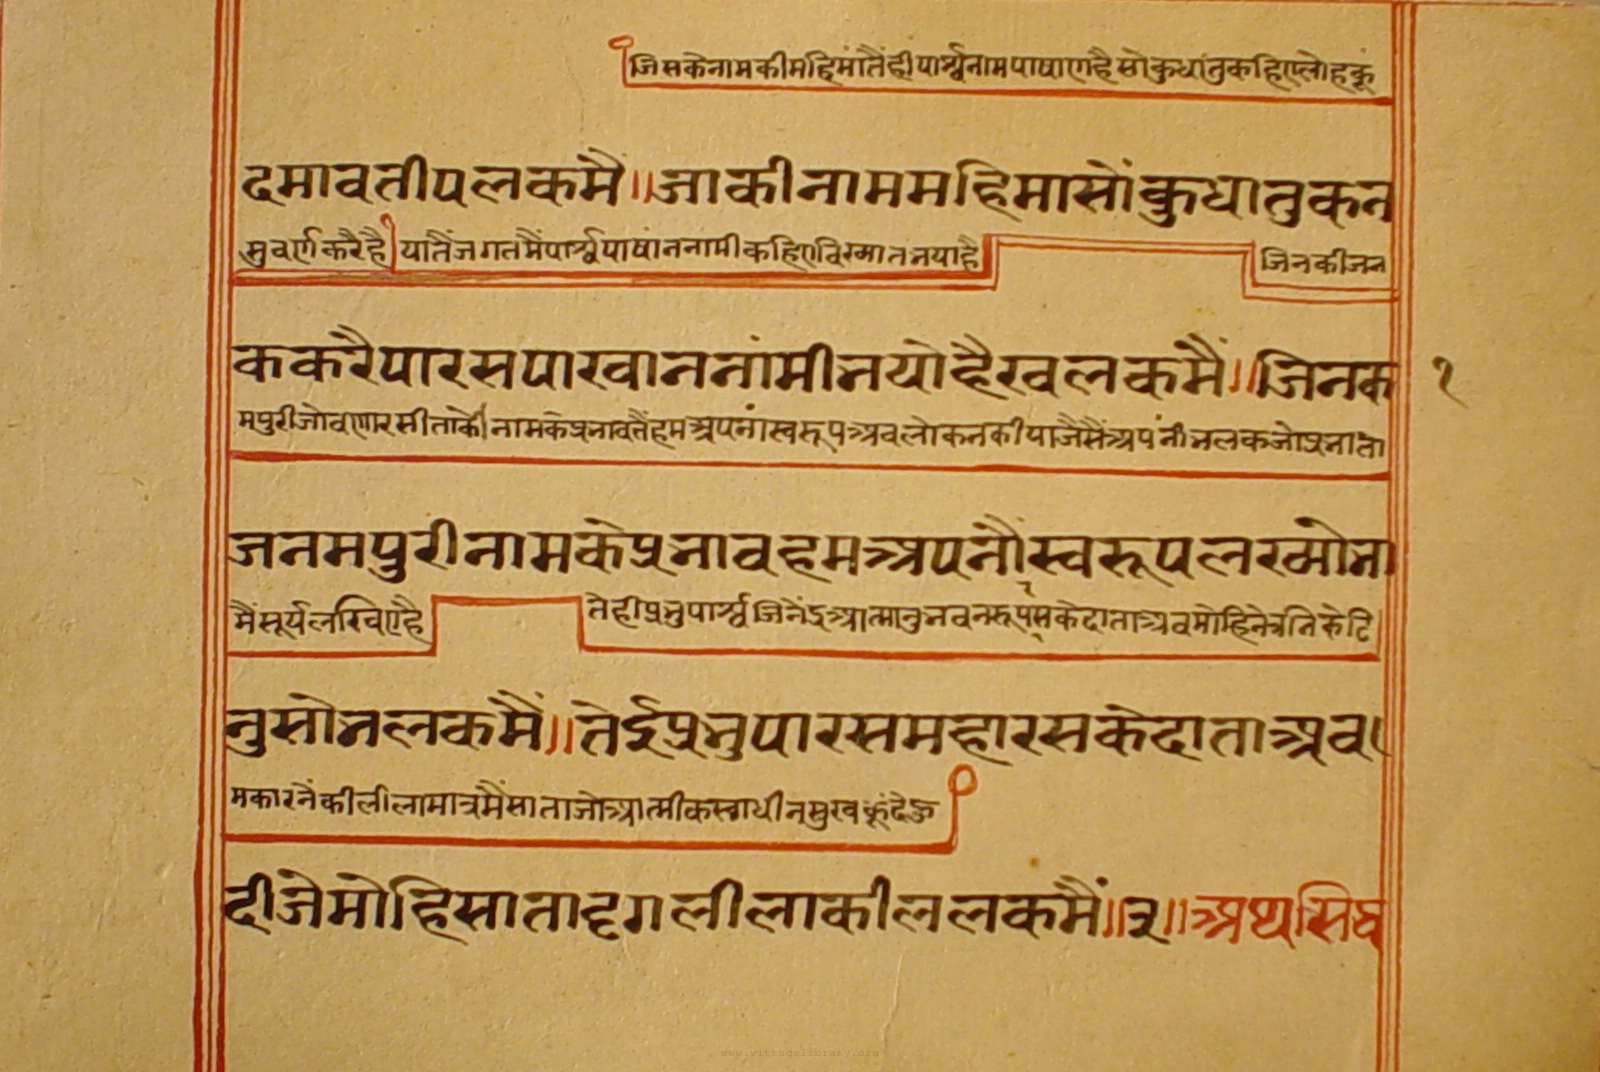 जिसकेनामकीमहिमांतैंहीपार्श्वनामपाषाणहैसोकुधांतुकहिएलोहकूं
दमावतीपलकमै॥जाकीनाममहिमासोंकुधातुकन
सुवर्णकरैहै यातैंजगतमैंपार्श्वपाषांननामीकहिएविख्यातनयाहै जिनकीजन
ककरैपारसपाखाननांमीनयोहैखलकमैं॥जिनक १
मपुरीजोवाणारसीताकेनामकेप्रनावतैंहमअपनांस्वरूपअवलोकनकीयाजैसैंअपनींनलकजोप्रनाता
जनमपुरीनामकेप्रनावहमअपनौस्वरूपलख्योना
मैंसूर्यलखिएहै तेहीप्रनुपार्श्वजिनेंद्रआत्मानुनवनरूपरसकेदाताअवमोहिनेत्रतिकेटि
नुसोनलकमैं॥तेईप्रनुपारसमहारसकेदाताअव।
मकारनैकीलीलामात्रमैंसाताजोआत्मीकस्वाधीनसुखकूंदेऊ
दीजैमोहिसातादृगलीलाकीललकमैं॥३॥अथसिध
www.vitragelibrary.org